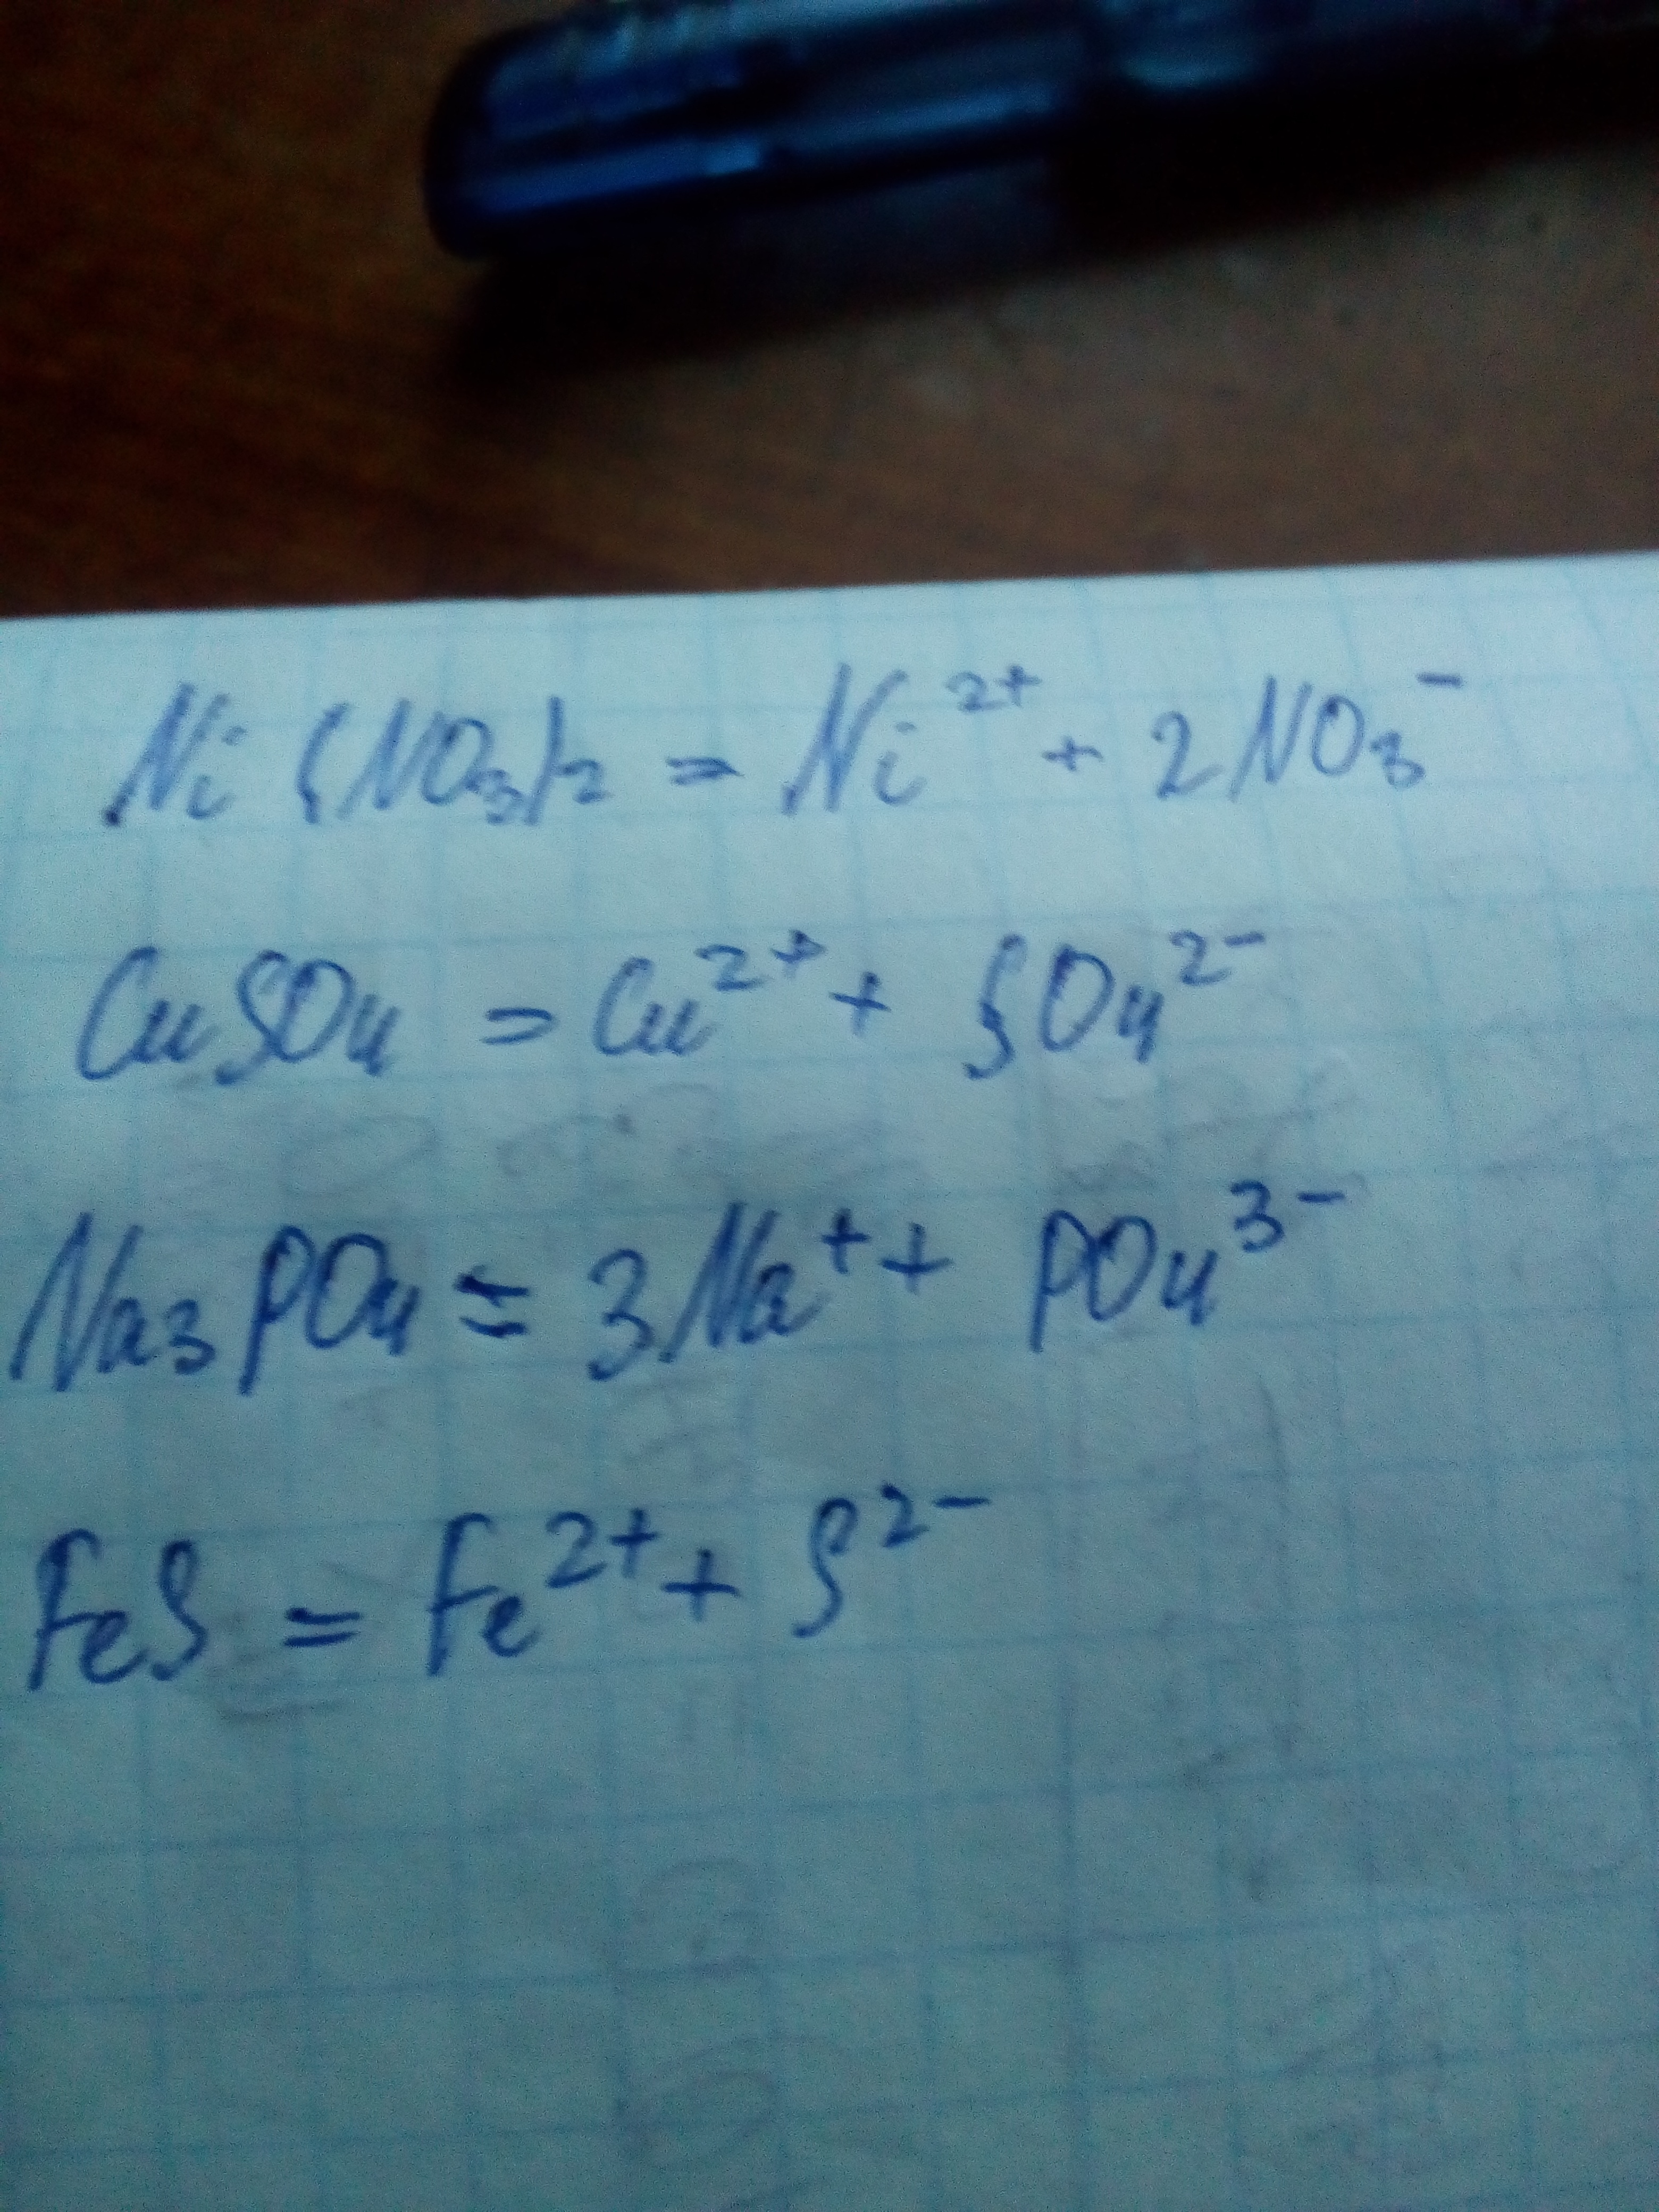 Ni(NO₃)₂ = Ni²⁺ + 2NO₃⁻
CuSO₄ = Cu²⁺ + SO₄²⁻
Na₃PO₄ = 3Na⁺ + PO₄³⁻
FeS = Fe²⁺ + S²⁻